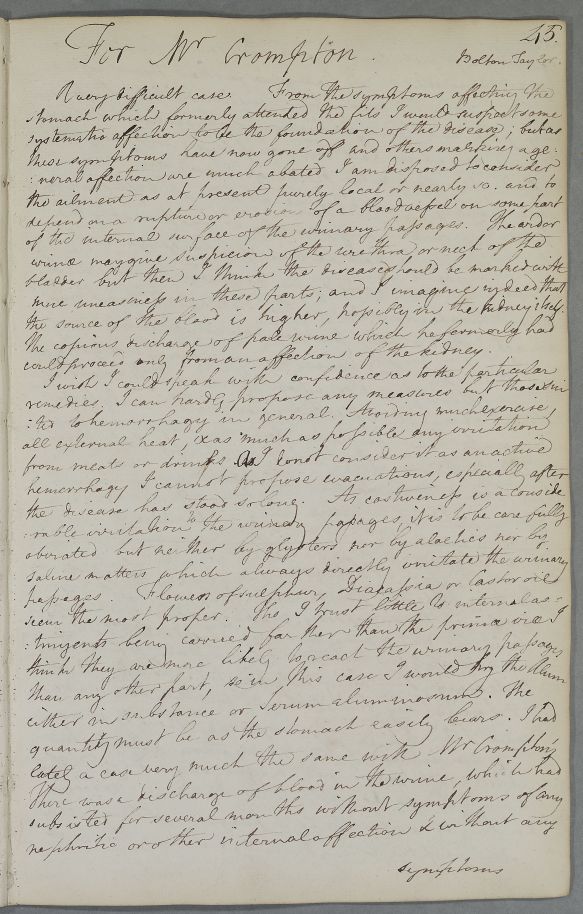 45.
For Mr Crompton.
Bolton Taylor.
A very difficult case. From the symptoms affecting the
stomach which formerly attended the fits I would suspect some
systematic affection to be the foundation of the disease; but as
these symptoms have now gone off and others marking a ge-
:neral affection are much abated I am disposed to consider
the ailment as at present purely local or nearly so. and to
depend on a rupture or erosion of a bloodvessel on some part
of the internal surface of the urinary passages. The ardor
urinæ may give suspicion of the urethra or neck of the
bladder but then I think the disease should be marked with
more uneasiness in these parts; and I imagine indeed that
the source of the blood is higher, possibly in the kidney itself.
The copious discharge of pale urine which he formerly had
could proceed only from an affection of the kidney.
I wish I could speak with confidence as to the particular
remedies. I can hardly propose any measures but those sui-
:ted to hemorrhagy in general. Avoiding much exercise,
all external heat, & as much as possible any irritation
from meats or drinks. As I do not consider it as an active
hemorrhagy I cannot propose evacuations, especially after
the disease has stood so long. As costiveness is a conside
:rable irritation to the urinary passages, it is to be carefully
obviated but neither by glysters nor by aloetics nor by
saline matters which always directly irritate the urinary
passages. Flowers of sulphur, Diacassia or Castor oil
seem the most proper. Tho I trust little to internal as-
:tringents being carried farther than the primæ viæ I
think they are more likely to reach the urinary passages
than any other part, & in this case I would try the Alum
either in substance or Serum aluminosum. The
quantity must be as the stomach easily bears. I had
lately a case very much the same with Mr Crompton's
There was a discharge of blood in the urine, which had
subsisted for several months without symptoms of any
nephritic or other internal affection & without any
symptoms